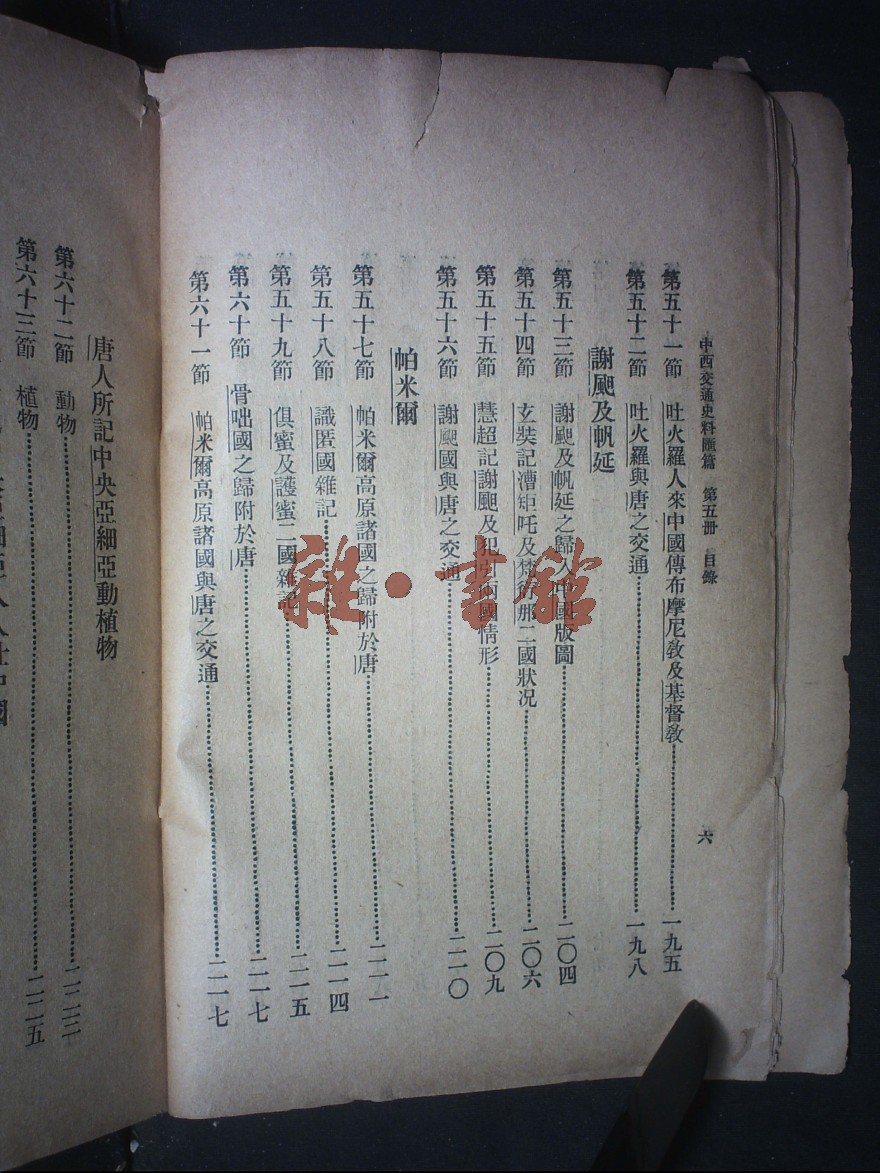 中西交通史料匯篇 第五册 目錄
六
第五十一節 吐火羅人來中國傳布摩尼敎及基督敎 一九五
第五十二節 吐火羅與唐之交通 一九八
謝䫻及帆延
第五十三節 謝䫻及帆延之歸入中國版圖 二〇四
第五十四節 玄奘記漕矩吒及梵衍那二國狀况 二〇六
第五十五節 慧超記謝䫻及犯引兩國情形 二〇九
第五十六節 謝䫻國與唐之交通 二一〇
帕米爾
第五十七節 帕米爾高原諸國之歸附於唐 二一一
第五十八節 識匿國雜記 二一四
第五十九節 俱蜜及護蜜二國雜記 二一五
第六十節 骨咄國之歸附於唐 二一七
第六十一節 帕米爾高原諸國與唐之交通 二一七
唐人所記中央亞細亞動植物
第六十二節 動物 二二三
第六十三節 植物 二二五
人入仕中國
雜·書館